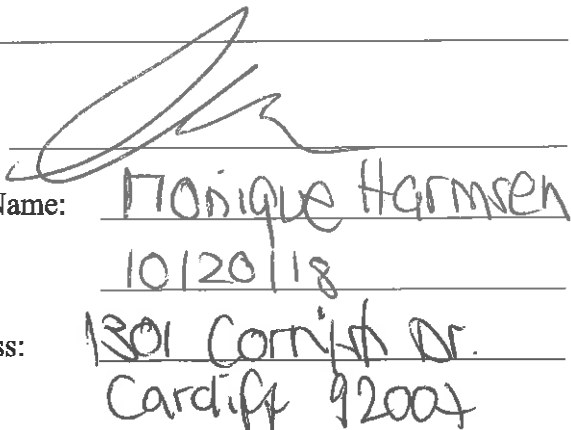 Name: Monique Harmsen
10/20/18
ss: 1301 Cornish Dr.
Cardiff 92007